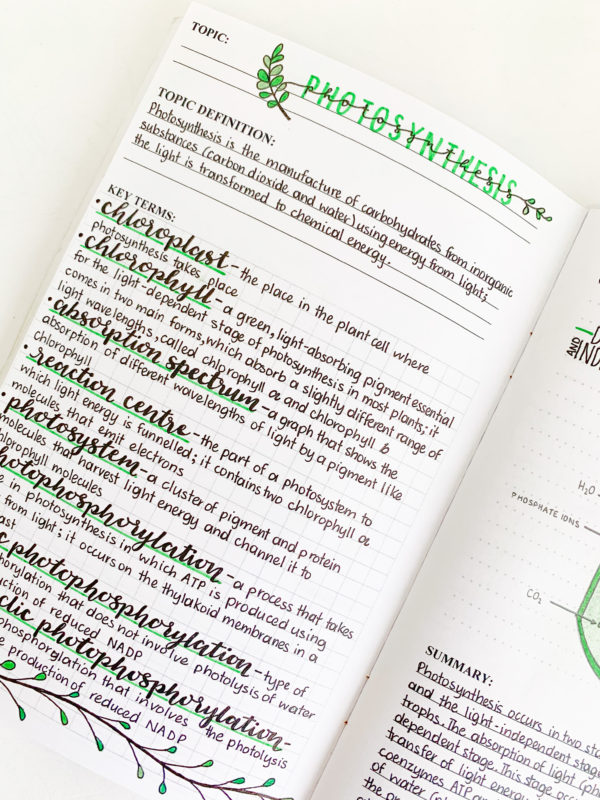 TOPIC:
PHOTOSYNTHESIS
photosynthesis
TOPIC DEFINITION:
Photosynthesis is the manufacture of carbohydrates from inorganic
substances (carbon dioxide and water) using energy from light;
the light is transformed to chemical energy.
KEY TERMS:
• chloroplast - the place in the plant cell where
photosynthesis takes place
• chlorophyll - a green, light-absorbing pigment essential
for the light-dependent stage of photosynthesis in most plants; it
comes in two main forms, which absorb a slightly different range of
light wavelengths, called chlorophyll a and chlorophyll b
• absorption spectrum - a graph that shows the
absorption of different wavelengths of light by a pigment like
chlorophyll
• reaction centre - the part of a photosystem to
which light energy is funnelled; it contains two chlorophyll a
molecules that emit electrons
• photosystem - a cluster of pigment and protein
molecules that harvest light energy and channel it to
chlorophyll molecules
photophosphorylation - a process that takes
in photosynthesis in which ATP is produced using
from light; it occurs on the thylakoid membranes in a
photophosphorylation - type of
that does not involve photolysis of water
of reduced NADP
photophosphorylation -
that involves the photolysis
production of reduced NADP
AND
H₂O
PHOSPHATE IONS
CO₂
SUMMARY:
Photosynthesis occurs in two
and the light-independent
trophs. The absorption of light
dependent stage. This stage
transfer of light energy
coenzymes ATP
of water
the